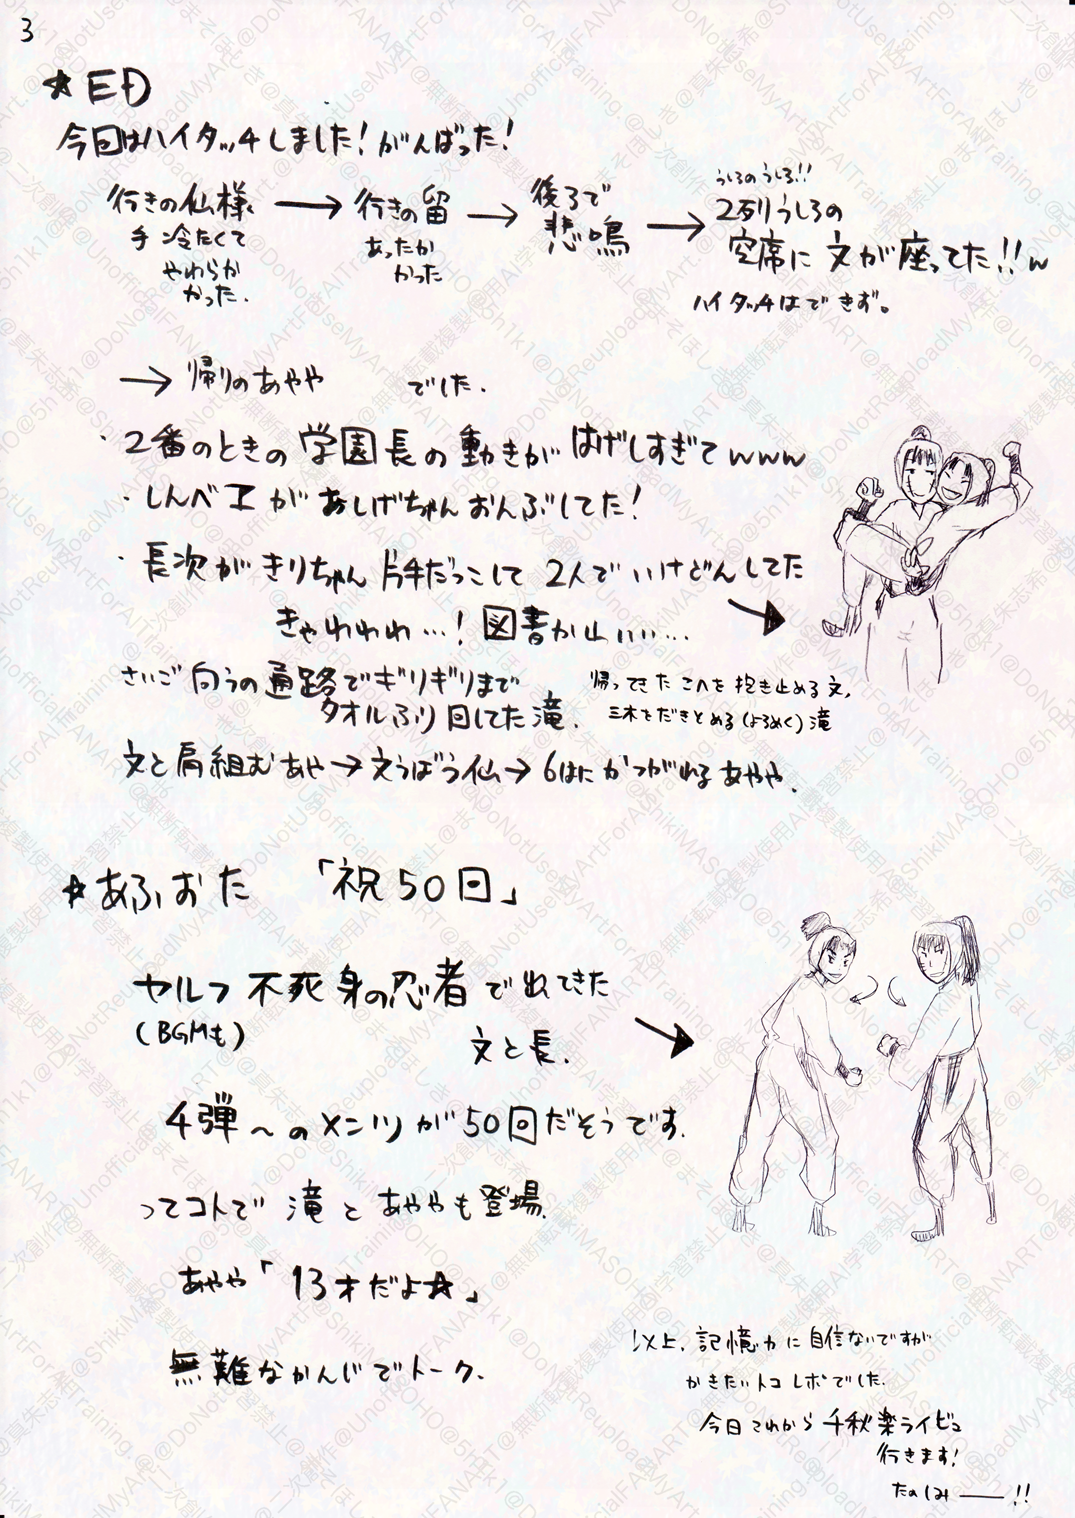 3
★ED
今回はハイタッチしました!がんばった!
行きの仙様 → 行きの留 → 後ろで悲鳴 → 2列うしろの
うしろのうしろ!!
手冷たくて
やわらか
かった.
あったか
かった
空席に文が座ってた!!w
ハイタッチはできず。
→ 帰りのあやや でした.
・2番のときの学園長の動きがはげしすぎてwww
・しんベエがあしげちゃんおんぶしてた!
・長次がきりちゃん片手だっこして2人でいけどんしてた
きゃわわわ…!図書かわいい…
さいご向うの通路でギリギリまで
タオルふり回してた滝.
帰ってきたこへを抱き止める文,
三木をだきとめる(よろめく)滝
文と肩組むあや→文うばう仙→6はにかつがれるあやや.
★あふおた 「祝50回」
セルフ不死身の忍者で出てきた
(BGMも)
文と長.
4弾~のメンツが50回だそうです.
ってコトで滝とあややも登場.
あやや「13才だよ☆」
無難なかんじでトーク.
以上,記憶力に自信ないですが
かきたいトコレポでした.
今日これから千秋楽ライビュ
行きます!
たのしみ――!!